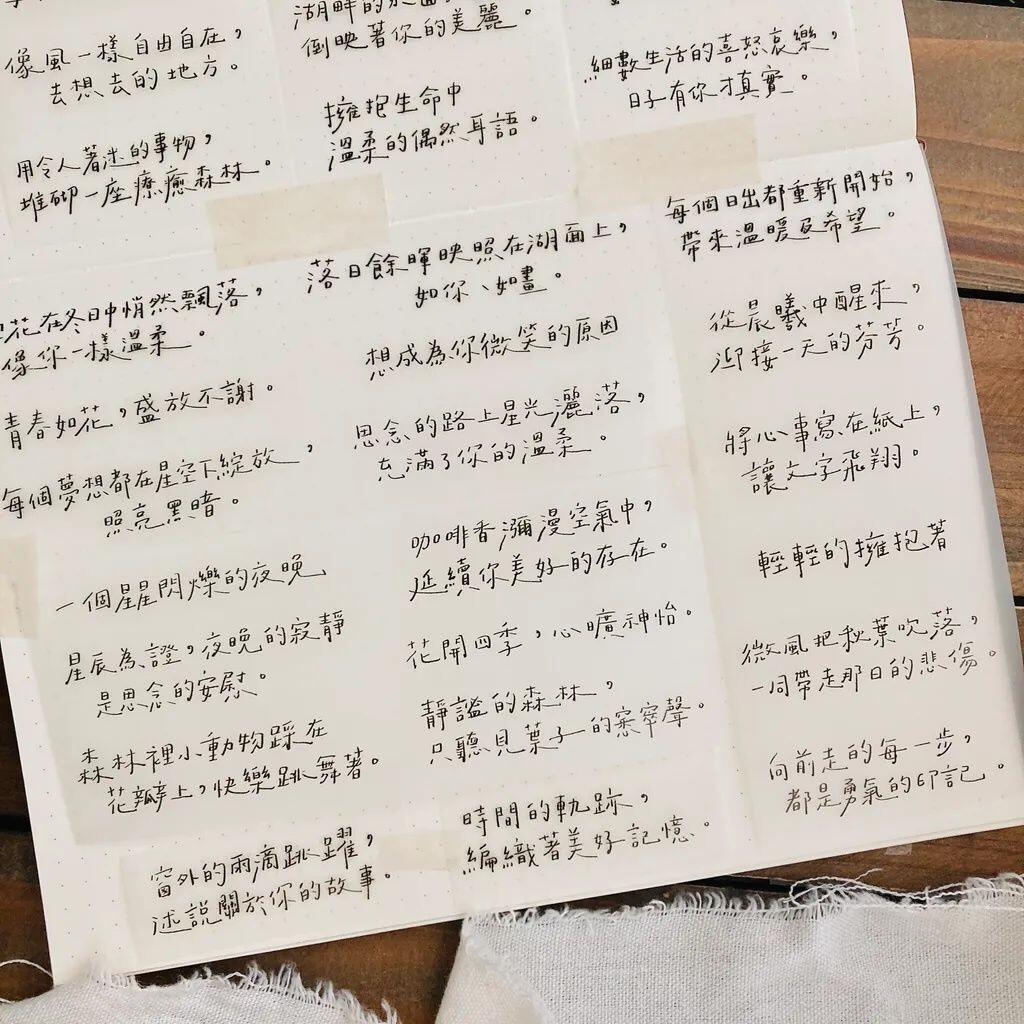 像風一樣自由自在，
去想去的地方。
用令人著迷的事物，
堆砌一座療癒森林。
花在冬日中悄然飄落，
像你一樣溫柔。
青春如花，盛放不謝。
每個夢想都在星空下綻放，
照亮黑暗。
一個星星閃爍的夜晚
星辰為證，夜晚的寂靜
是思念的安慰。
森林裡小動物踩在
花瓣上，快樂跳舞著。
窗外的雨滴跳躍，
述說關於你的故事。
湖畔的
倒映著你的美麗。
擁抱生命中
溫柔的偶然耳語。
落日餘暉映照在湖面上，
如你、如畫。
想成為你微笑的原因
思念的路上星光灑落，
充滿了你的溫柔。
咖啡香瀰漫空氣中，
延續你美好的存在。
花開四季，心曠神怡。
靜謐的森林，
只聽見葉子的窸窣聲。
時間的軌跡，
編織著美好記憶。
細數生活的喜怒哀樂，
日子有你才真實。
每個日出都重新開始，
帶來溫暖及希望。
從晨曦中醒來，
迎接一天的芬芳。
將心事寫在紙上，
讓文字飛翔。
輕輕的擁抱著
微風把秋葉吹落，
一同帶走那日的悲傷。
向前走的每一步，
都是勇氣的印記。